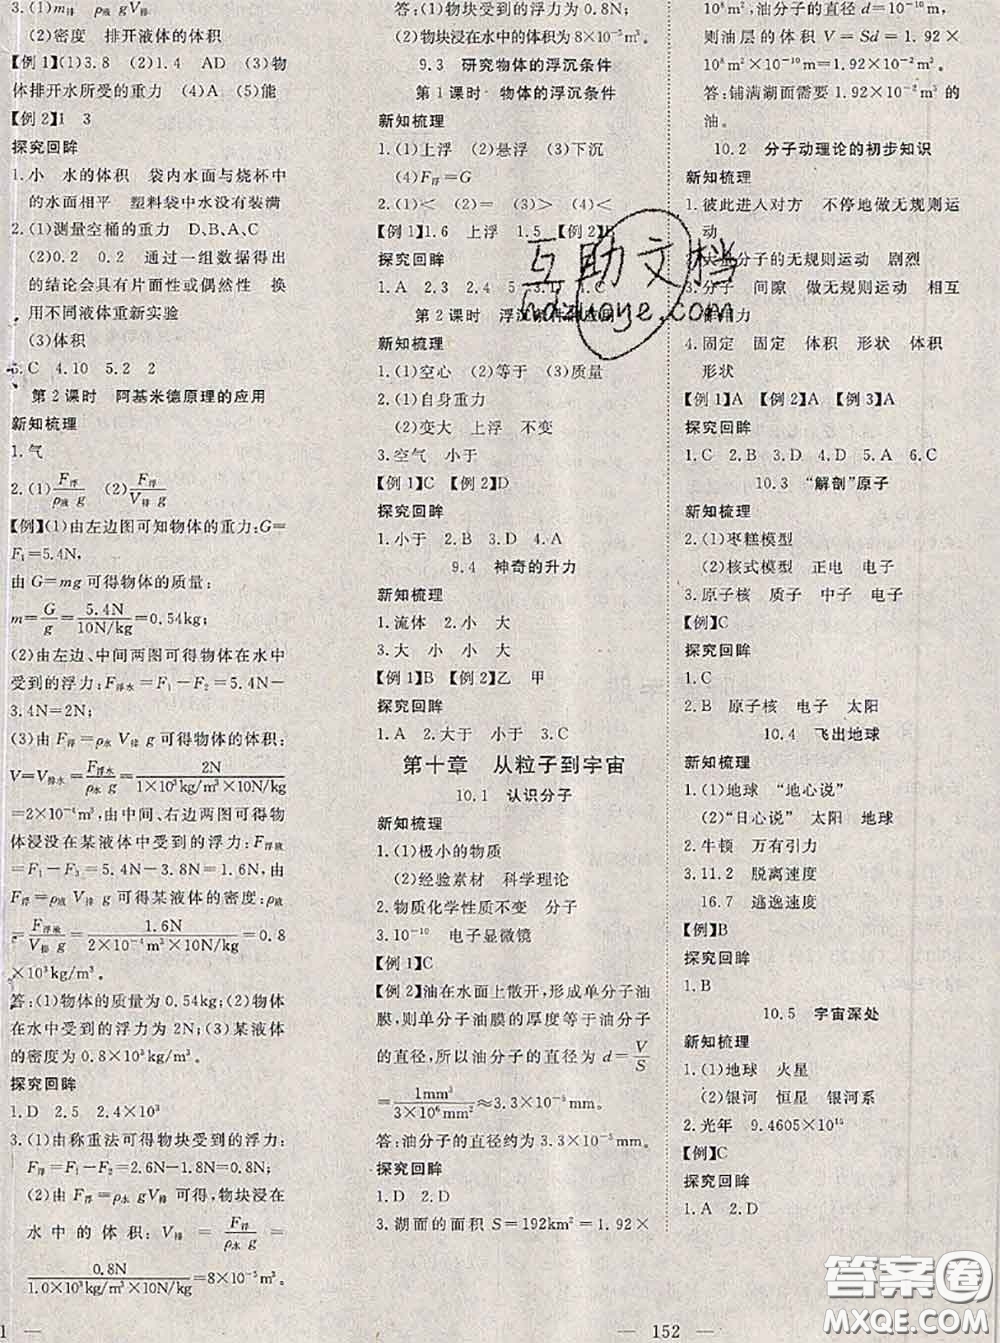 3.(1)m排  ρ液 gV排
(2)密度  排开液体的体积
【例1】(1)3.8  (2)1.4  AD  (3)物
体排开水所受的重力  (4)A  (5)能
【例2】1  3
探究回眸
1.小  水的体积  袋内水面与烧杯中
的水面相平  塑料袋中水没有装满
2.(1)测量空桶的重力  D、B、A、C
(2)0.2  0.2  通过一组数据得出
的结论会具有片面性或偶然性  换
用不同液体重新实验
(3)体积
3.C  4.10  5.2  2
第2课时  阿基米德原理的应用
新知梳理
1.气
2.(1)F浮/ρ液 g  (2)F浮/V排 g
【例】(1)由左边图可知物体的重力:G=
F₁=5.4N,
由 G=mg 可得物体的质量:
m=G/g=5.4N/10N/kg=0.54kg;
(2)由左边、中间两图可得物体在水中
受到的浮力:F浮水=F₁-F₂=5.4N-
3.4N=2N;
(3)由 F浮=ρ水 V排 g 可得物体的体积:
V=V排水=F浮水/ρ水 g=2N/1×10³kg/m³×10N/kg=
2×10⁻⁴m³,由左边、右边两图可得物
体浸没在某液体中受到的浮力:F浮液
=F₁-F₃=5.4N-3.8N=1.6N,由
F浮=ρ液 V排 g 可得某液体的密度:ρ液
=F浮液/V排 g=1.6N/2×10⁻⁴m³×10N/kg=0.8
×10³kg/m³。
答:(1)物体的质量为0.54kg;(2)物体
在水中受到的浮力为2N;(3)某液体
的密度为0.8×10³kg/m³。
探究回眸
1.D  2.5  2.4×10³
3.(1)由称重法可得物块受到的浮力:
F浮=F₁-F₂=2.6N-1.8N=0.8N;
(2)由 F浮=ρ水 gV排 可得,物块浸在
水中的体积:V排=F浮/ρ水 g=
0.8N/1.0×10³kg/m³×10N/kg=8×10⁻⁵m³。
答:(1)物块受到的浮力为0.8N;
(2)物块浸在水中的体积为8×10⁻⁵m³。
9.3  研究物体的浮沉条件
第1课时  物体的浮沉条件
新知梳理
1.(1)上浮  (2)悬浮  (3)下沉
(4)F浮=G
2.(1)<  (2)=  (3)>  (4)<
【例1】1.6  上浮  1.5  【例2】B
探究回眸
1.A  2.B  3.
第2课时  浮沉条件的应用
新知梳理
1.(1)空心  (2)等于  (3)质量
2.(1)自身重力
(2)变大  上浮  不变
3.空气  小于
【例1】C  【例2】D
探究回眸
1.小于  2.B  3.D  4.A
9.4  神奇的升力
新知梳理
1.流体  2.小  大
3.大  小  小  大
【例1】B  【例2】乙  甲
探究回眸
1.A  2.大于  小于  3.C
第十章  从粒子到宇宙
10.1  认识分子
新知梳理
1.(1)极小的物质
(2)经验素材  科学理论
2.物质化学性质不变  分子
3.10⁻¹⁰  电子显微镜
【例1】C
【例2】油在水面上散开,形成单分子油
膜,则单分子油膜的厚度等于油分子
的直径,所以油分子的直径为 d=V/S
=1mm³/3×10⁶mm²≈3.3×10⁻⁷mm。
答:油分子的直径约为3.3×10⁻⁷mm。
探究回眸
1.D  2.D
3.湖面的面积 S=192km²=1.92×
10⁸m²,油分子的直径 d=10⁻¹⁰m,
则油层的体积 V=Sd=1.92×
10⁸m²×10⁻¹⁰m=1.92×10⁻²m³。
答:铺满湖面需要1.92×10⁻²m³的
油。
10.2  分子动理论的初步知识
新知梳理
1.彼此进入对方  不停地做无规则运
动
2.大量分子的无规则运动  剧烈
3.分子  间隙  做无规则运动  相互
作用力
4.固定  固定  体积  形状  体积
形状
【例1】A  【例2】A  【例3】A
探究回眸
1.C  2.B  3.D  4.D  5.A  6.C
10.3  “解剖”原子
新知梳理
2.(1)枣糕模型
(2)核式模型  正电  电子
3.原子核  质子  中子  电子
【例】C
探究回眸
1.C
2.B  原子核  电子  太阳
10.4  飞出地球
新知梳理
1.(1)地球  “地心说”
(2)“日心说”  太阳  地球
2.牛顿  万有引力
3.11.2  脱离速度
16.7  逃逸速度
【例】B
探究回眸
1.B
10.5  宇宙深处
新知梳理
1.(1)地球  火星
(2)银河  恒星  银河系
2.光年  9.4605×10¹⁵
【例】C
探究回眸
1.A  2.D
— 152 —
1 —
互助文档
hdzuoye.com
答案圈
MXQE.COM